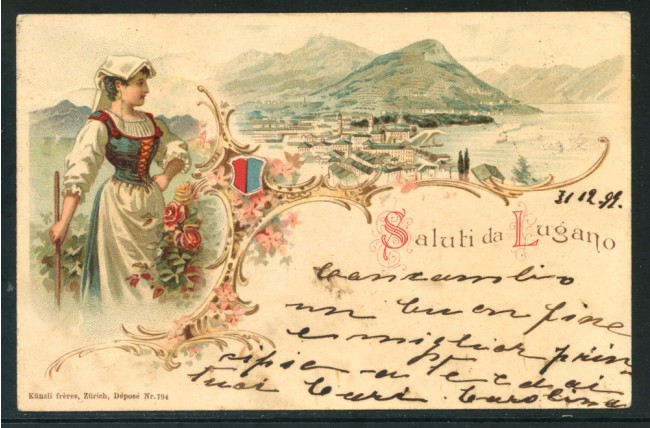 31 12. 99.
Saluti da Lugano
Concambio
un buon fine
e miglior prin
cipio a te ed ai
tuoi cari. Carolina
Künzli frères, Zürich, Déposé Nr. 794